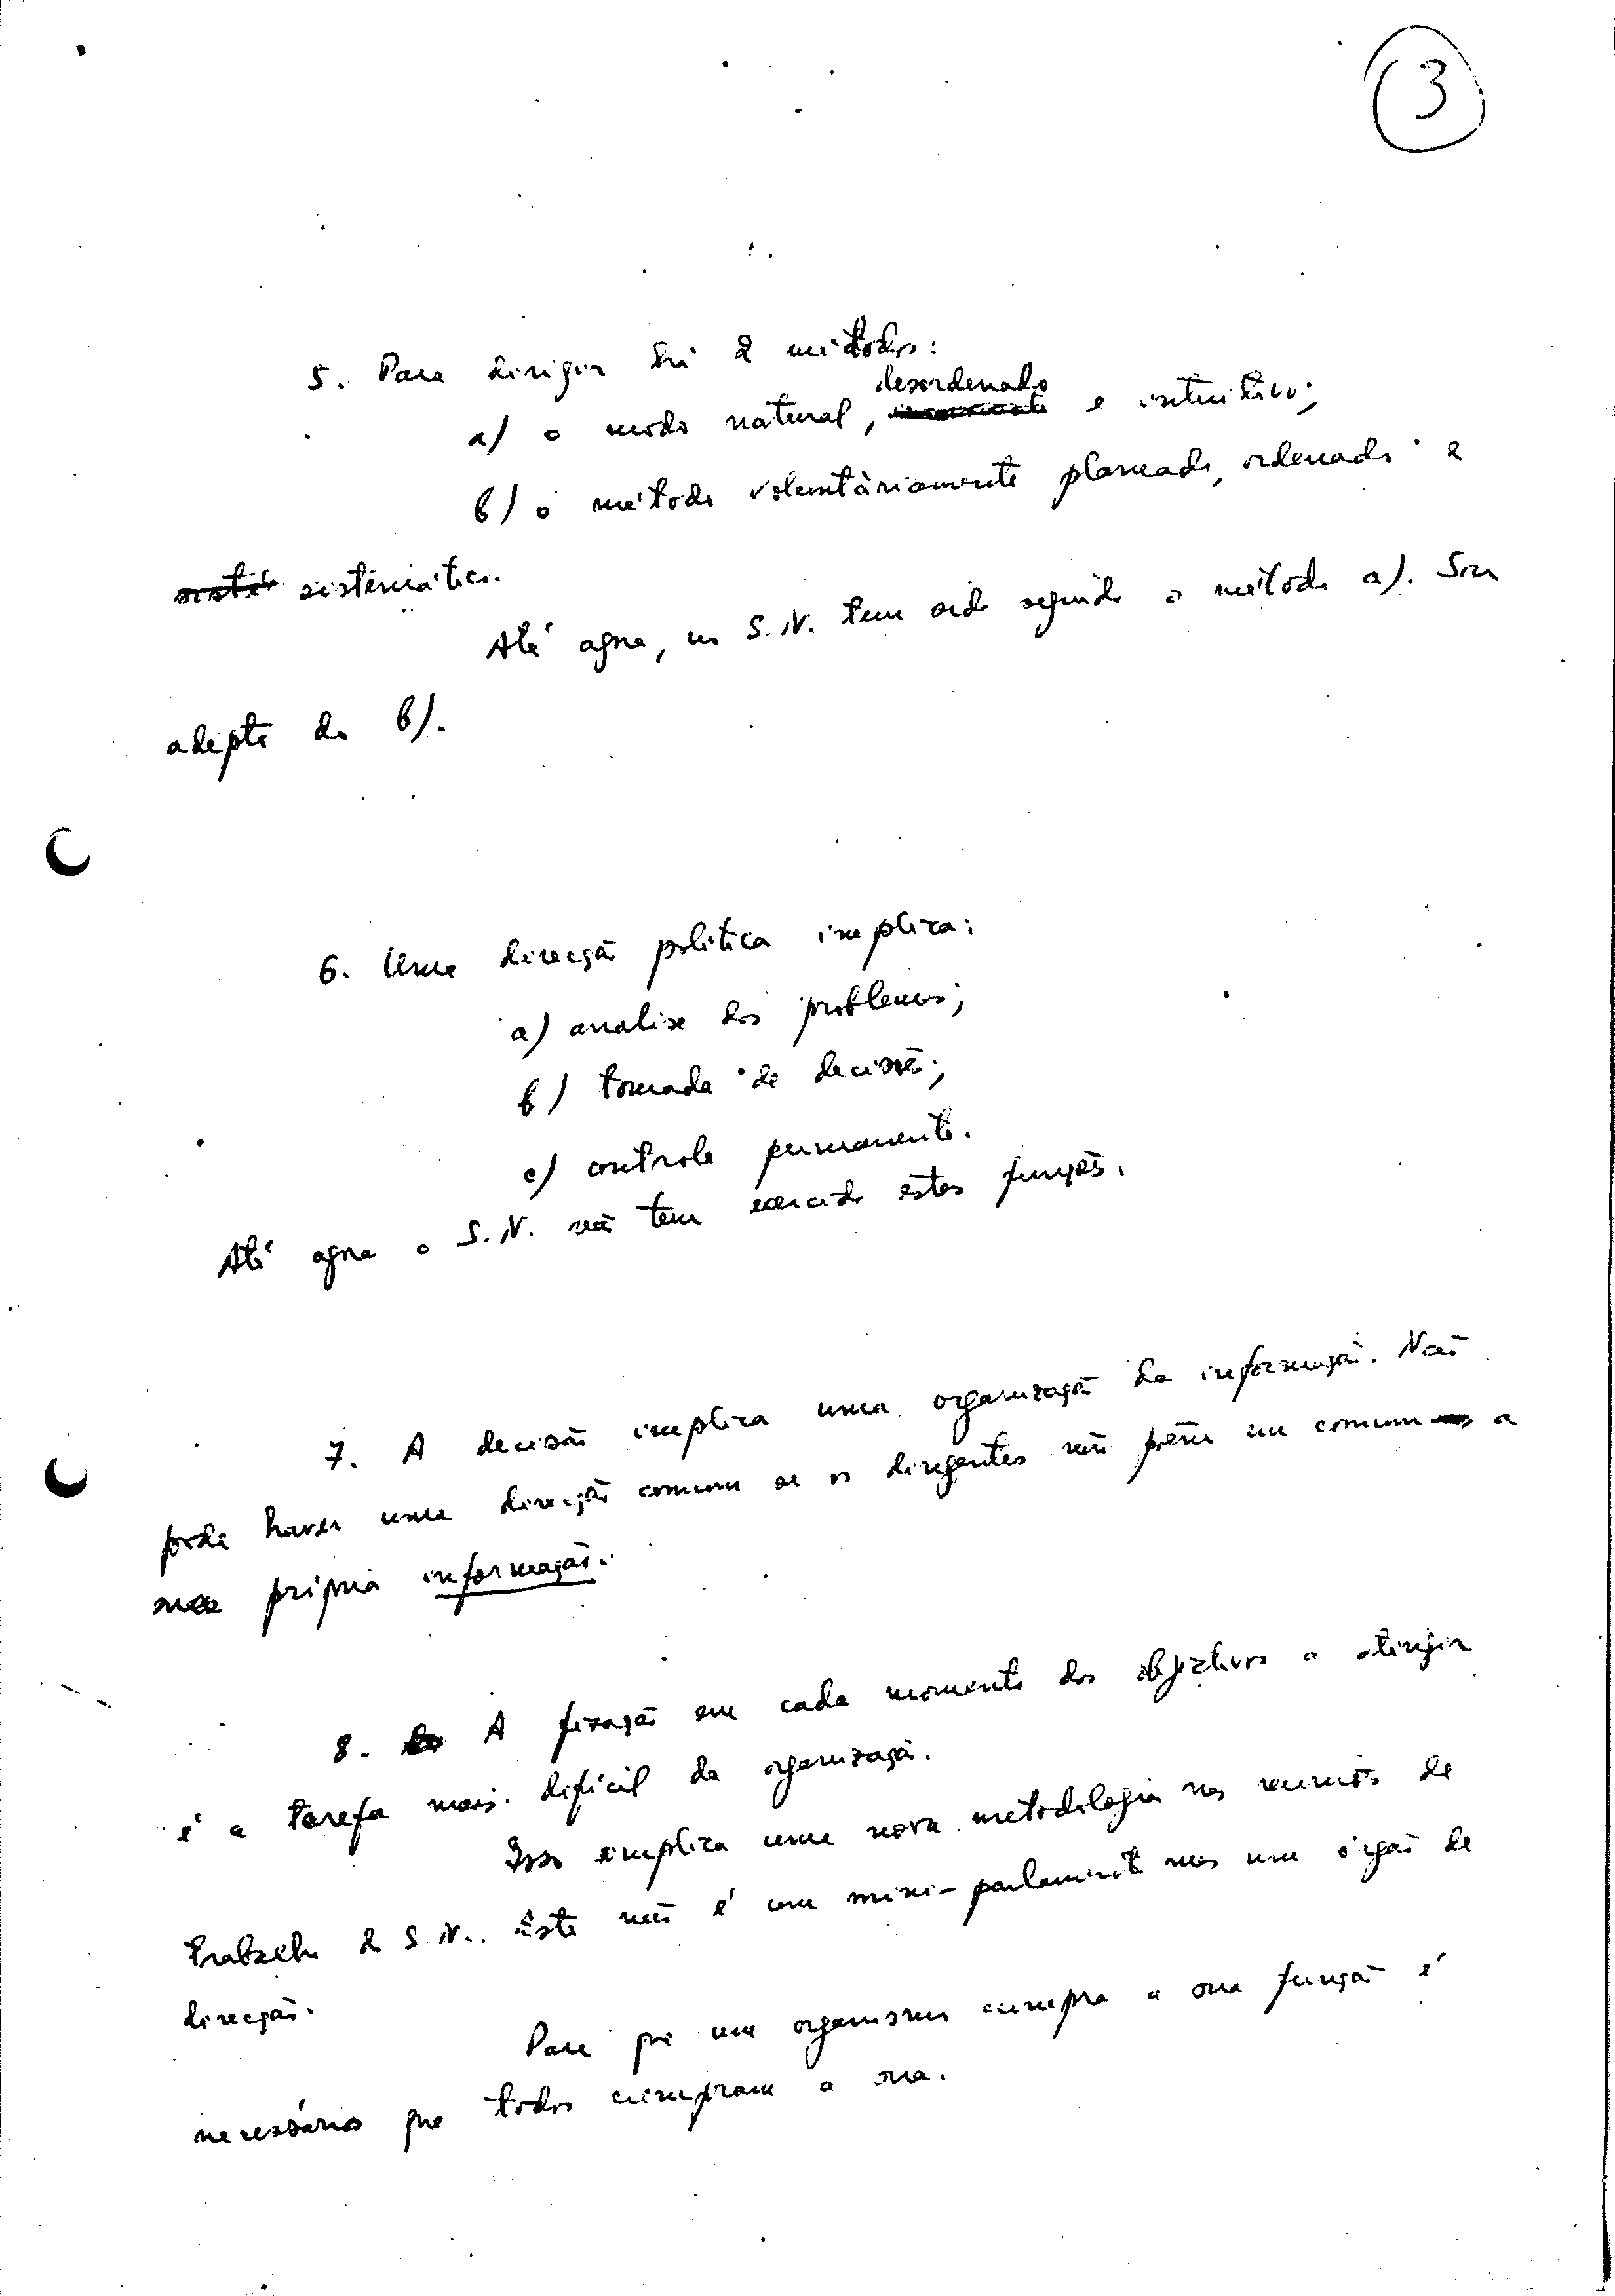 3
5. Para dirigir há 2 métodos:
desordenado
a) o modo natural, e intuitivo;
b) o método voluntàriamente planeado, ordenado e
sistemático.
Até agora, no S.N. tem sido seguido o método a). Sou
adepto do b).
6. Uma direcção política implica:
a) analise dos problemas;
b) tomada de decisões;
c) controle permanente.
Até agora o S.N. não tem exercido estas funções.
7. A decisão implica uma organização da informação. Não
pode haver uma direcção comum se os dirigentes não põem em comum a
sua própria informação.
8. A fixação em cada momento dos objectivos a atingir
é a tarefa mais difícil da organização.
Isso implica uma nova metodologia nas reuniões de
trabalho do S.N.. Êste não é um mini-parlamento mas um órgão de
direcção.
Para que um organismo cumpra a sua função é
necessário que todos cumpram a sua.